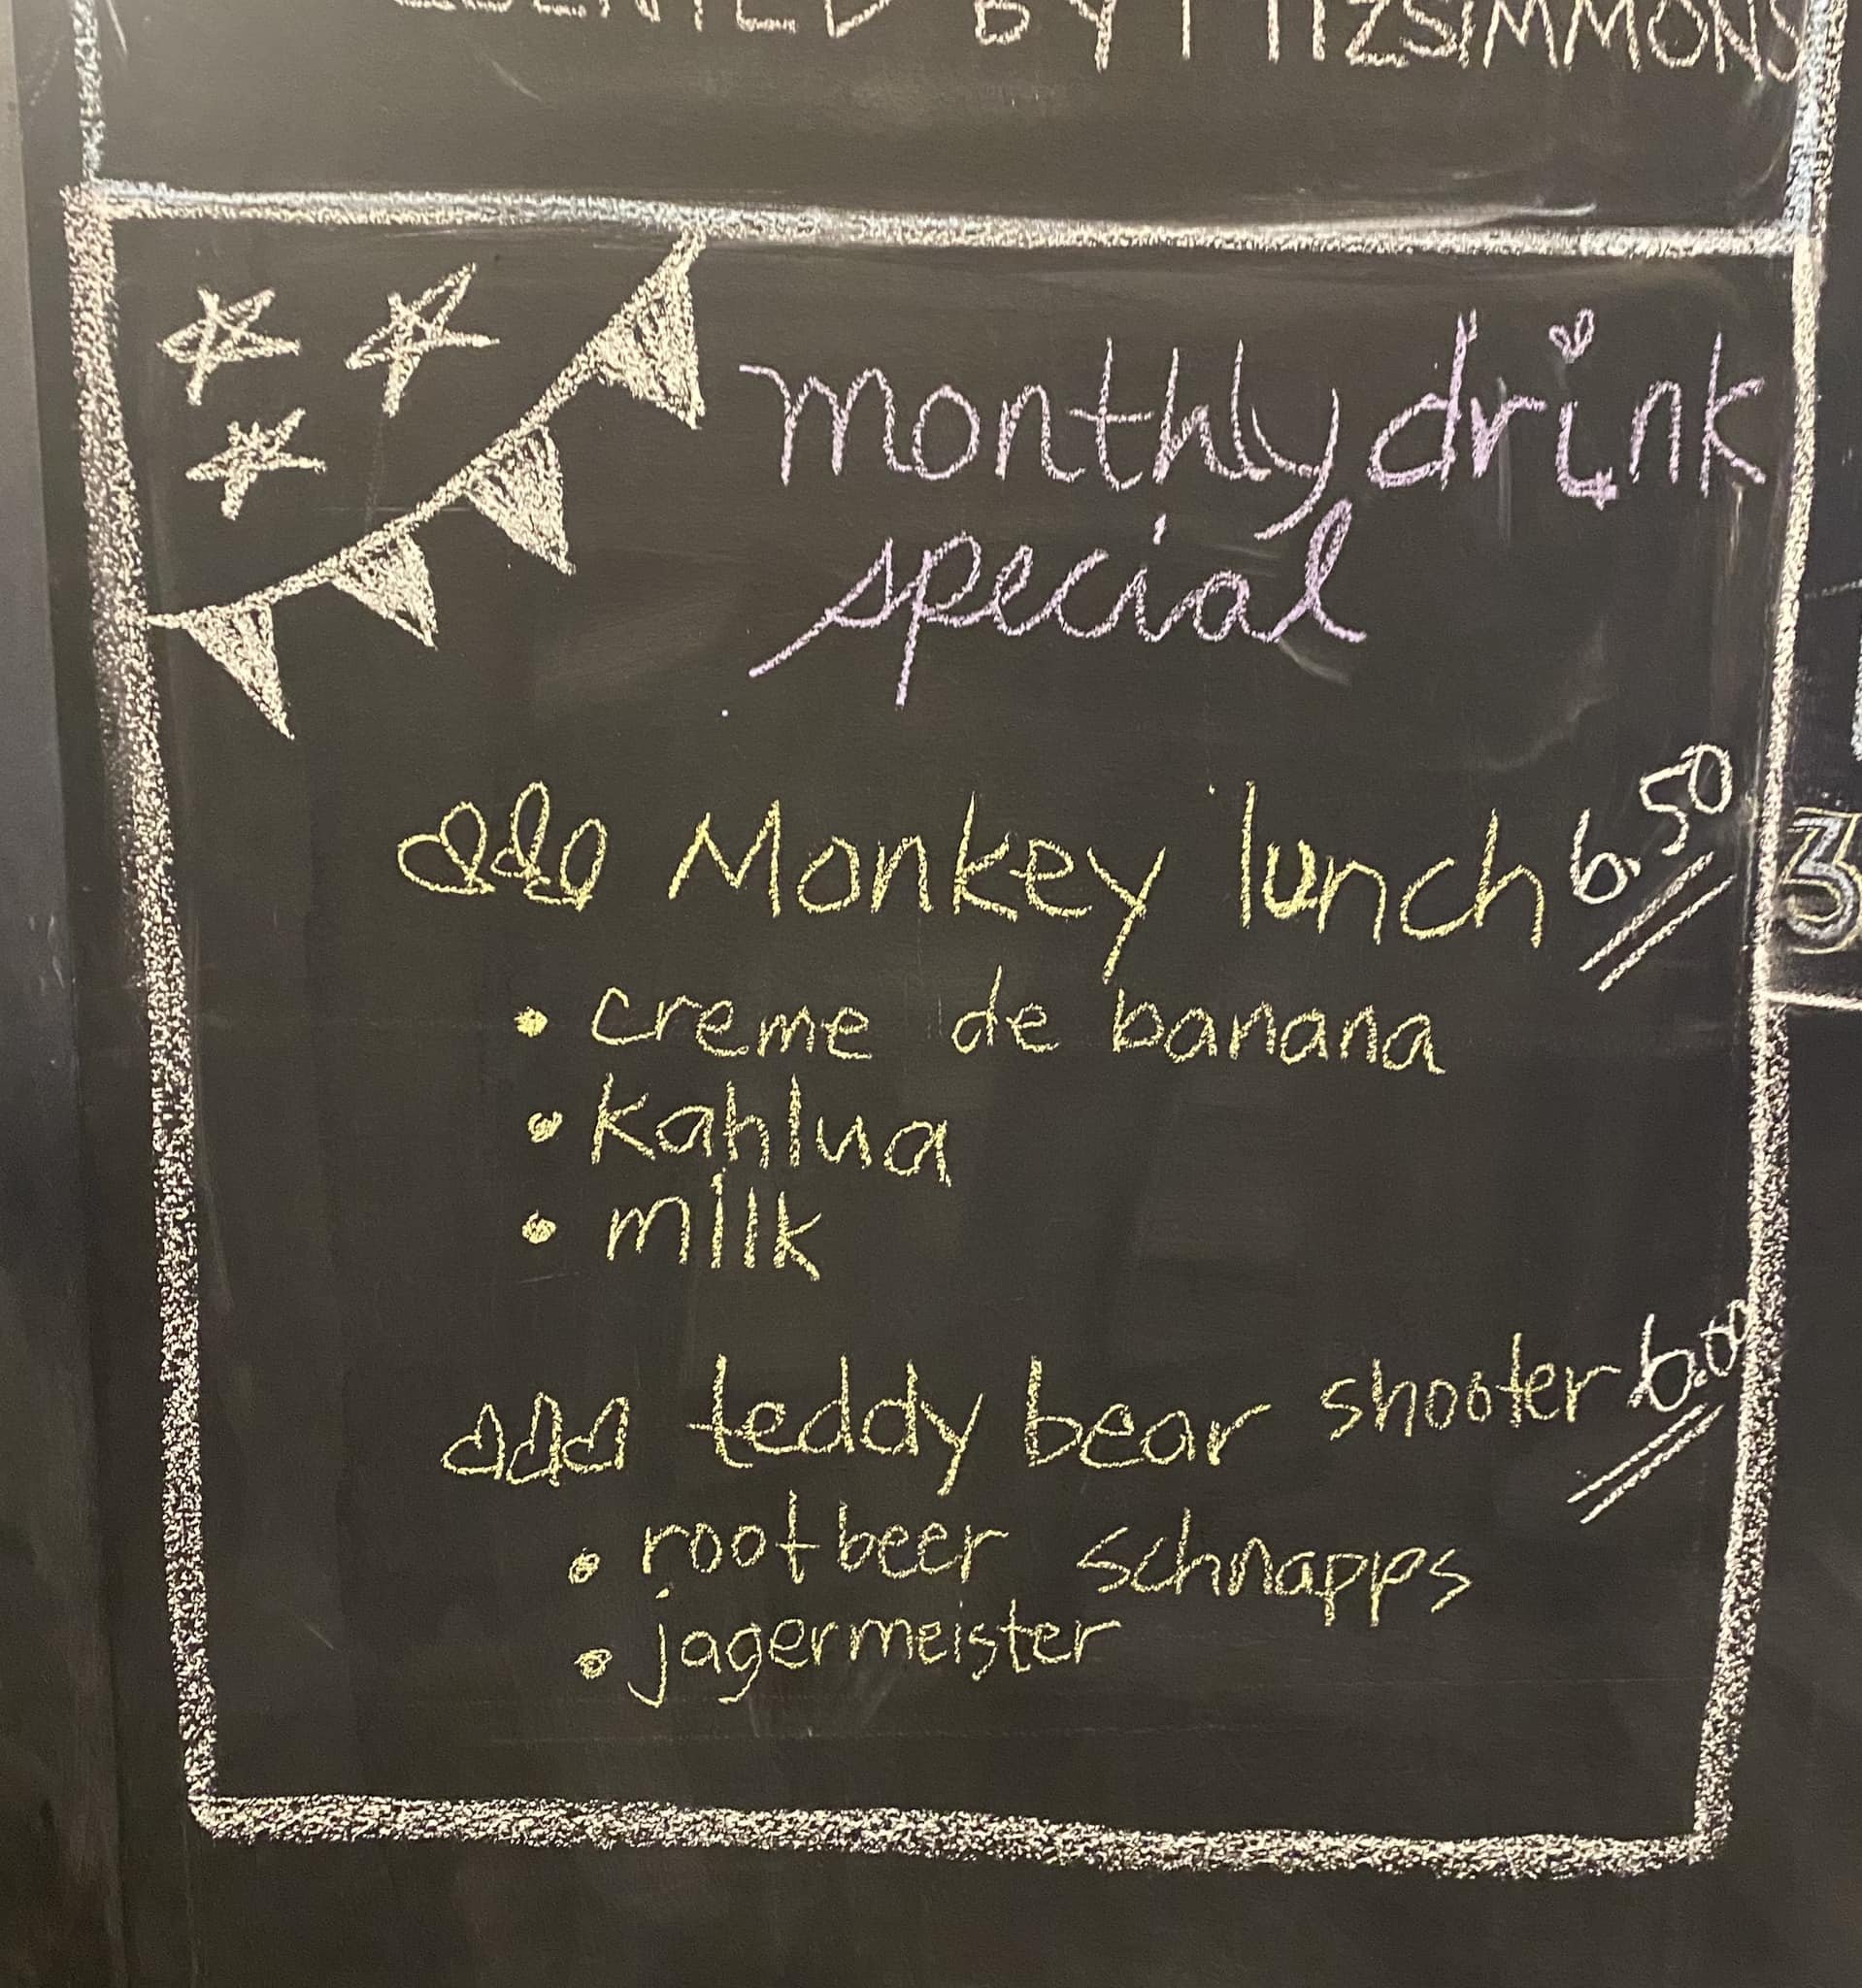 BY FITZSIMMONS
monthly drink
special
Monkey lunch 6.50
• creme de banana
• kahlua
• milk
teddy bear shooter 6.00
• rootbeer schnapps
• jagermeister
3